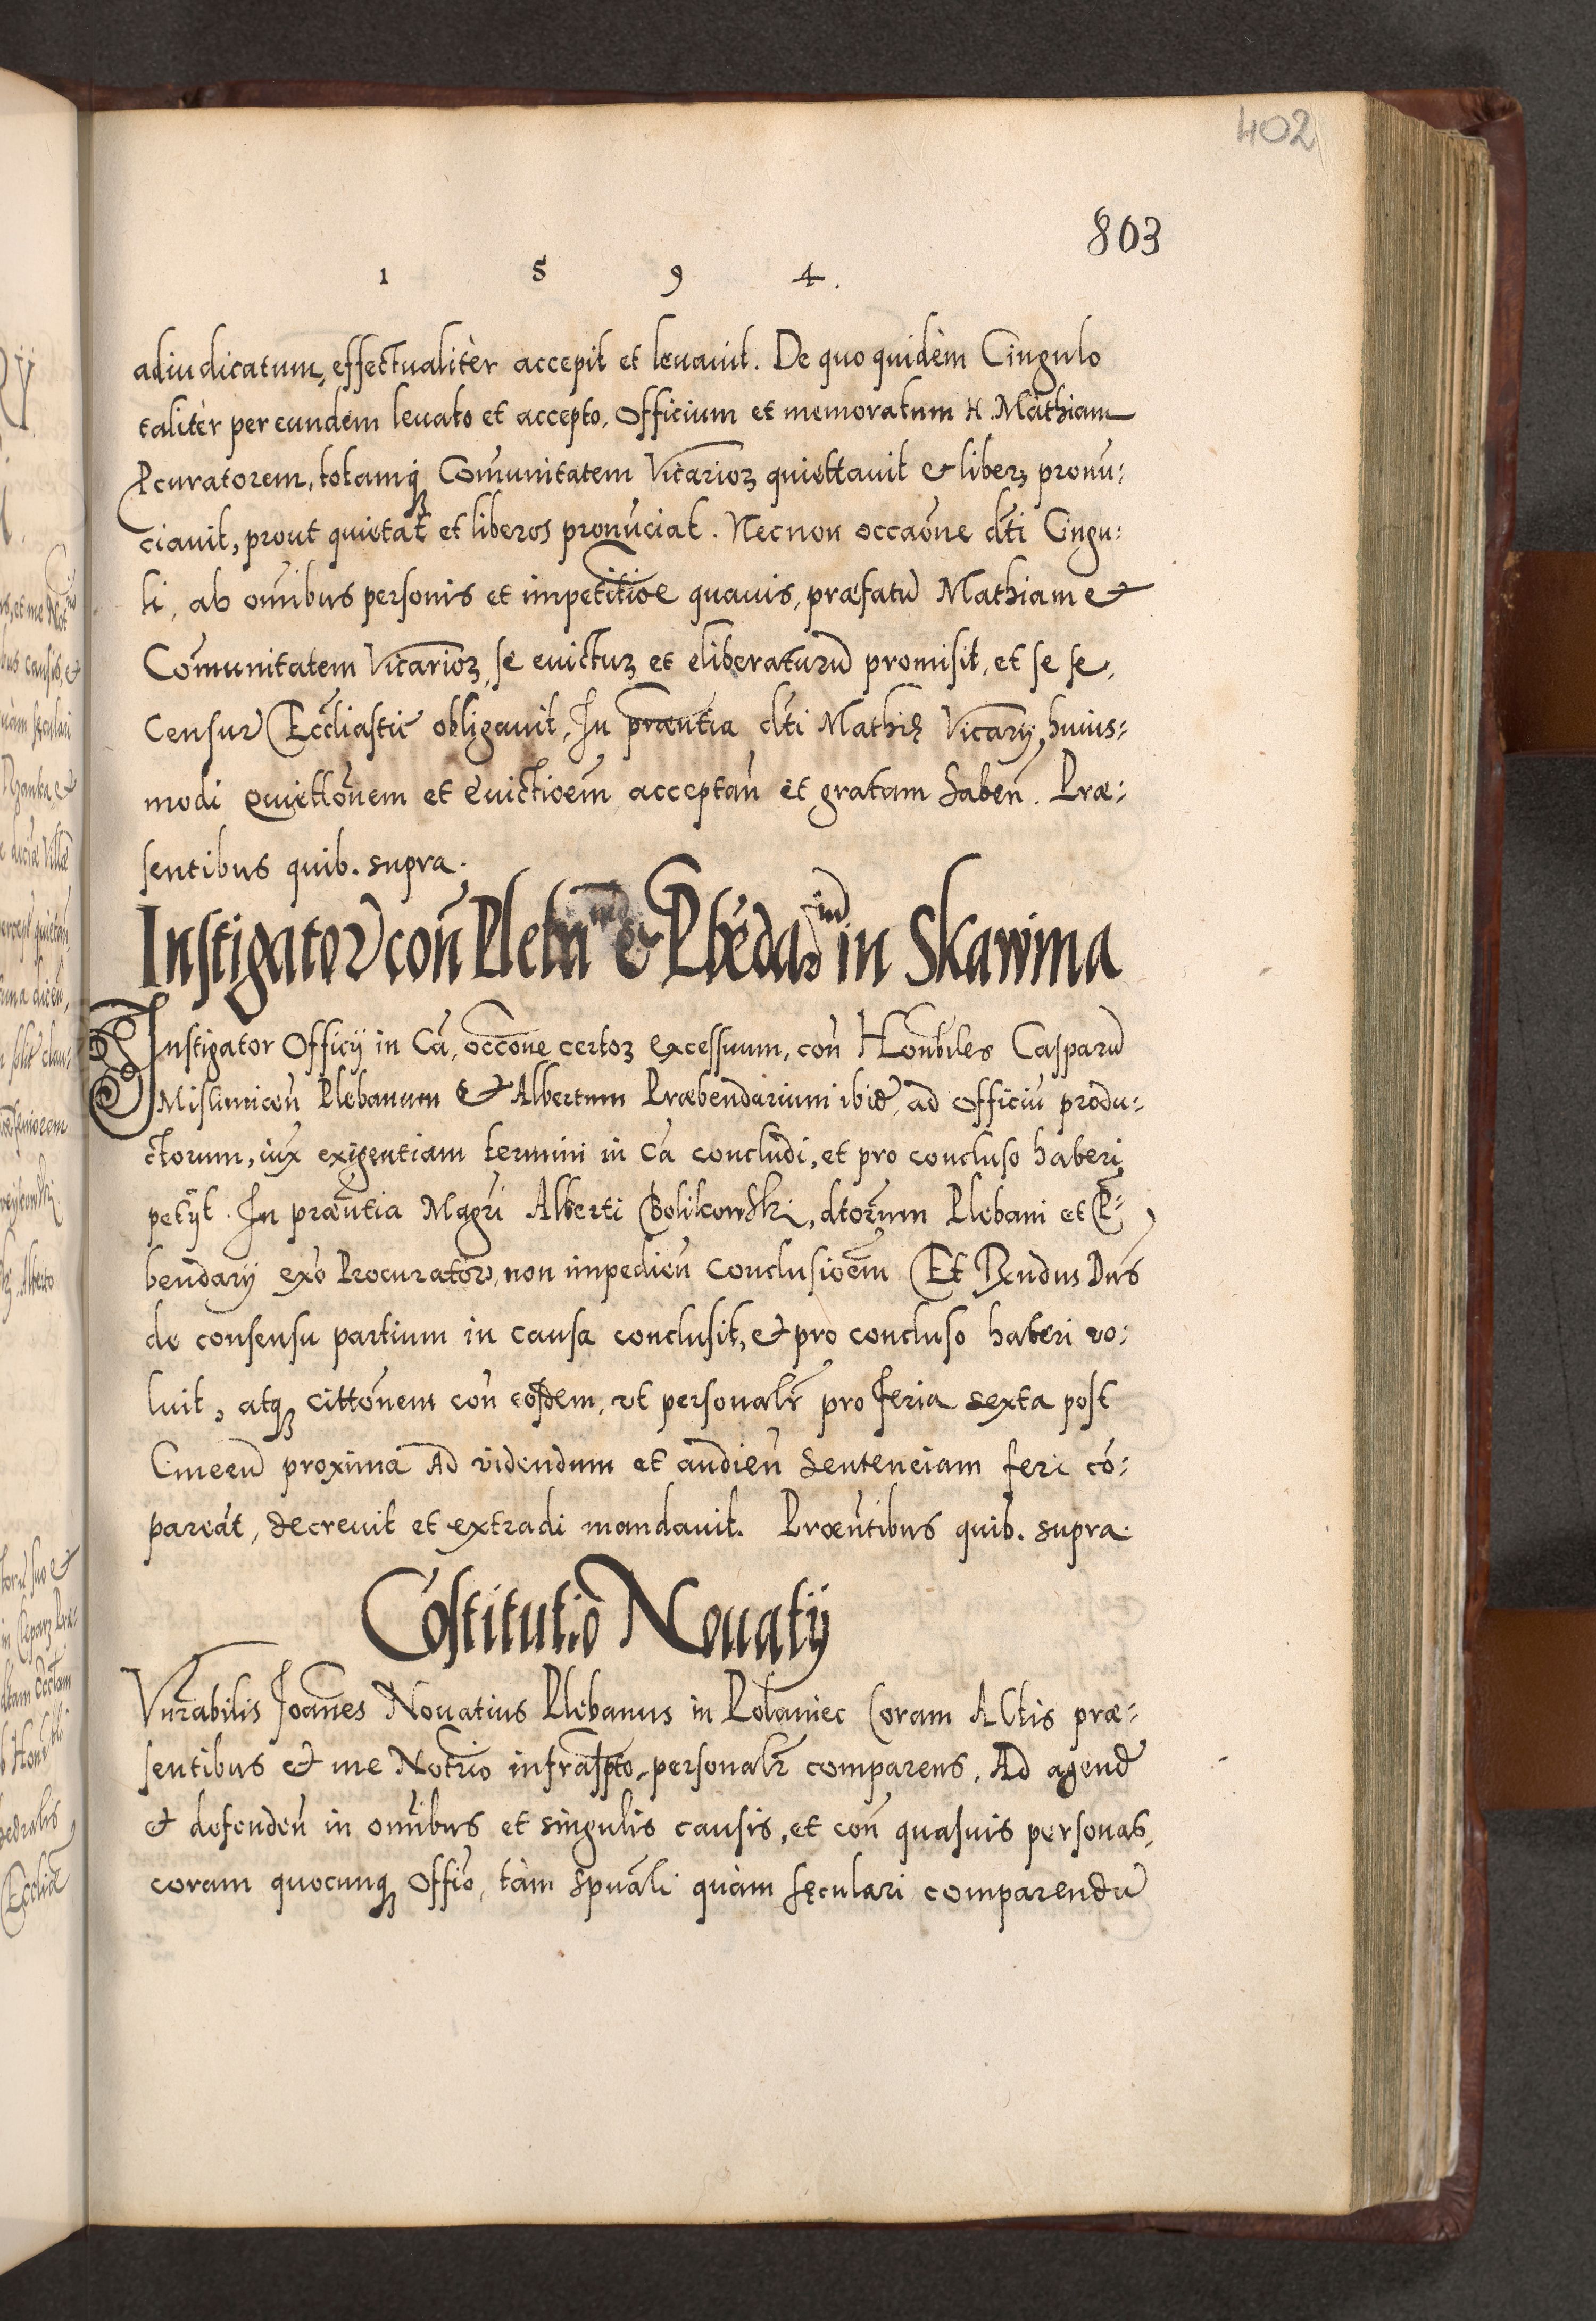 402
803
1 5 9 4.
adiudicatum, effectualitèr accepit et leuauit. De quo quidèm Cingulo
talitèr per eundem leuato et accepto, Officium et memoratum H. Mathiam
Pcuratorem, totamq; Com̃unitatem Vicarioꝝ quiettauit et liberꝫ pronũ:
ciauit, prout quietat et liberos pronũciat. Necnon occaõne dti Cingu:
li, ab om̃ibus personis et impetitioẽ quauis, præfatũ Mathiam et
Com̃unitatem Vicarioꝝ, se euicturꝫ et eliberaturũ promisit, et se se,
Censur Eccliastic̃ obligauit, In præntia dti Mathię Vicarÿ, huius:
modi Quiettõnem et Euictioẽm acceptañ et gratam habeñ. Præ:
sentibus quib. supra.
Instigator coñ Plebañ et Pbẽdar in Skawina
Instigator Officÿ in Cã, occõne certoꝝ excessuum, coñ Honbiles Casparũ
Plebanum et Albertum Præbendarium ibid̃, ad Officiũ produ:
ctorum, iux exigentiam termini in Cã concludi, et pro concluso haberi
petÿt. In præñtia Magri Alberti Bolikowski, dtorum Plebani et P:
bendarÿ exo Procurator, non impedieñ conclusioẽm Et Rx̃ndus Dñs
de consensu partium in causa conclusit, et pro concluso haberi vo:
luit, atq; cittõnem coñ eosdem, vt personalr̃ pro feria sexta post
Cinerũ proxima Ad videndum et audieñ Sentenciam feri cõ:
pareãt, decreuit et extradi mandauit. Præñtibus quib. supra.
Cõstitutio Nouatÿ
Vnrabilis Joannes Nouatius Plebanus in Polaniec Coram Actis præ:
sentibus et me Notrio infrascpto, personalr̃ comparens, Ad agend̃
et defendeñ in om̃ibus et singulis causis, et coñ quasuis personas,
coram quocunq; Offiõ, tàm Spuãli quàm sęculari comparendũ